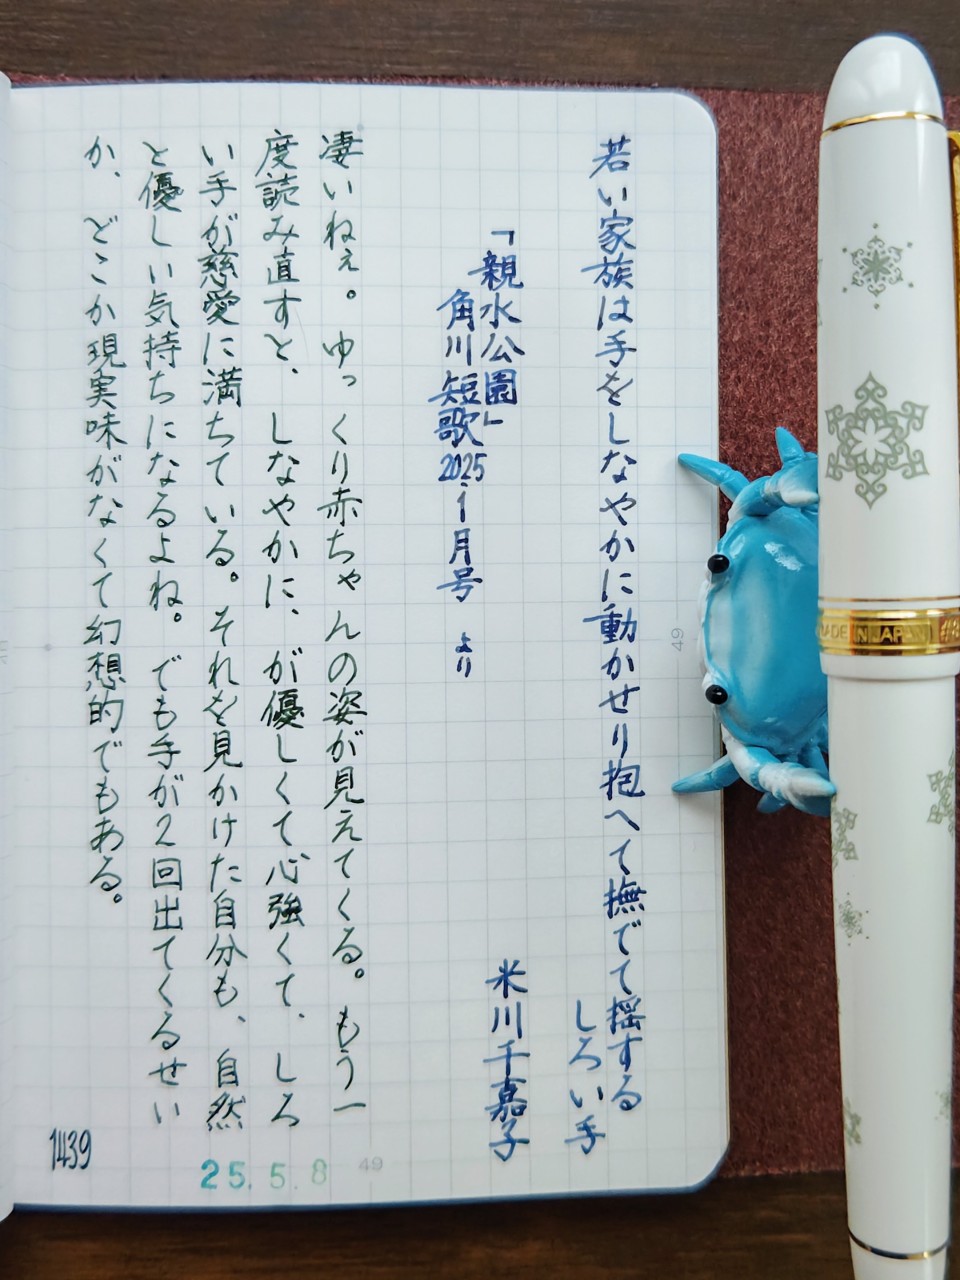 若い家族は手をしなやかに動かせり抱へて撫でて揺する
しろい手
「親水公園」
米川千嘉子
角川短歌2025.1月号 より
凄いねぇ。ゆっくり赤ちゃんの姿が見えてくる。もう一
度読み直すと、しなやかに、が優しくて心強くて、しろ
い手が慈愛に満ちている。それを見かけた自分も、自然
と優しい気持ちになるよね。でも手が2回出てくるせい
か、どこか現実味がなくて幻想的でもある。
1439
25.5.8
49
49
MADE IN JAPAN